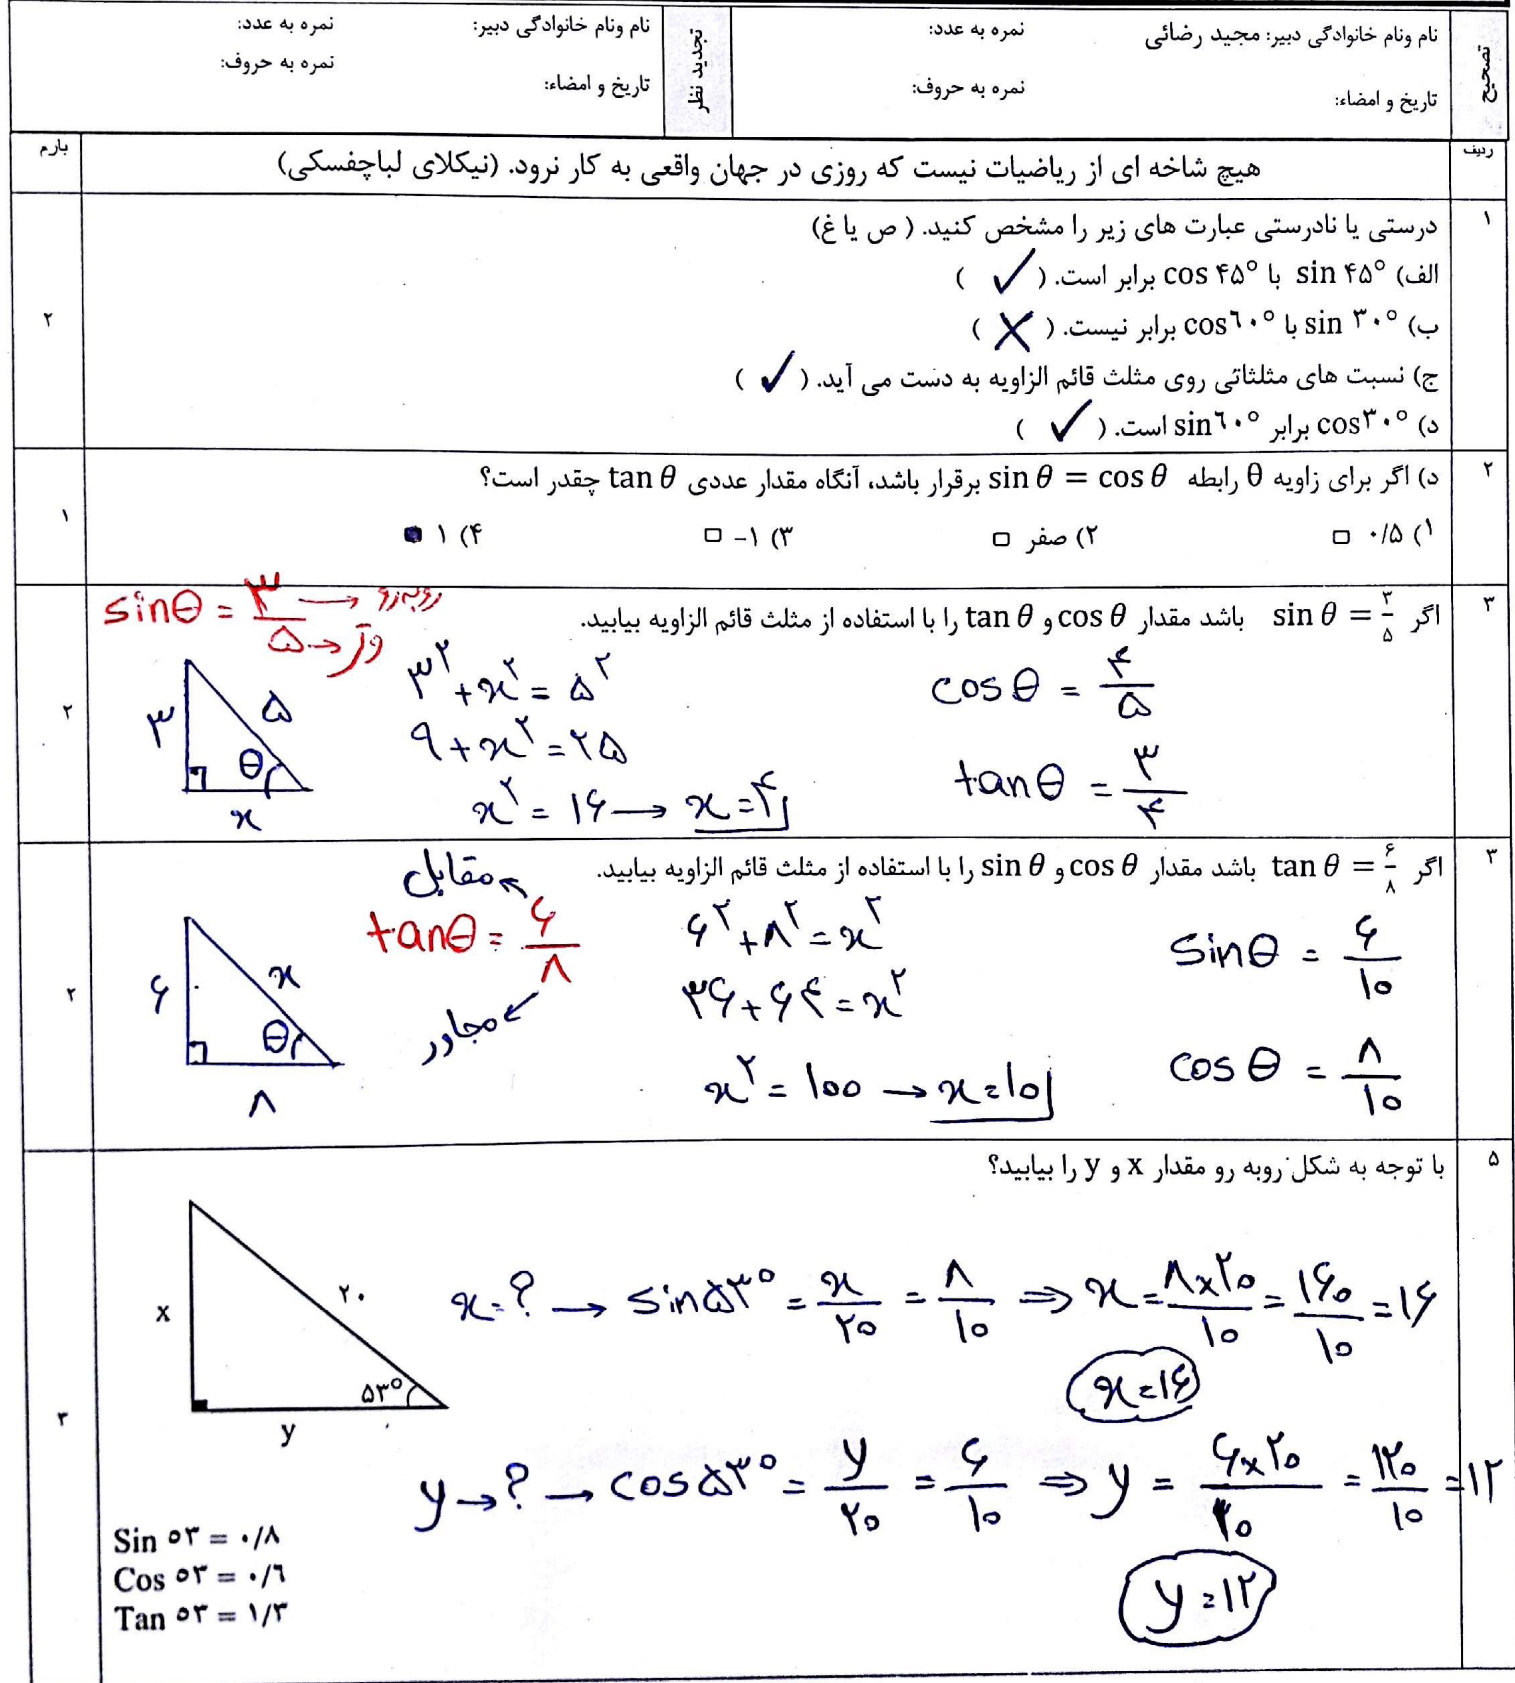 تصحیح
نام ونام خانوادگی دبیر: مجید رضائی
نمره به عدد:
تاریخ و امضاء:
نمره به حروف:
تجدید نظر
نام ونام خانوادگی دبیر:
نمره به عدد:
تاریخ و امضاء:
نمره به حروف:
ردیف
هیچ شاخه ای از ریاضیات نیست که روزی در جهان واقعی به کار نرود. (نیکلای لباچفسکی)
بارم
۱
درستی یا نادرستی عبارت های زیر را مشخص کنید. ( ص یا غ)
الف) sin ۴۵° با cos ۴۵° برابر است. ( ✓ )
ب) sin ۳۰° با cos۶۰° برابر نیست. ( X )
ج) نسبت های مثلثاتی روی مثلث قائم الزاویه به دست می آید. ( ✓ )
د) cos۳۰° برابر sin۶۰° است. ( ✓ )
۲
۲
د) اگر برای زاویه θ رابطه sin θ = cos θ برقرار باشد، آنگاه مقدار عددی tan θ چقدر است؟
۱) ۰/۵ □ ۲) صفر □ ۳) ۱- □ ۴) ۱ ■
۱
۳
اگر sin θ = ۳/۵ باشد مقدار cos θ و tan θ را با استفاده از مثلث قائم الزاویه بیابید.
sinθ = ۳/۵
→ روبه رو
→ وتر
۳
۵
θ
x
۳² + x² = ۵²
۹ + x² = ۲۵
x² = ۱۶ → x = ۴
cosθ = ۴/۵
tanθ = ۳/۴
۲
۳
اگر tan θ = ۶/۸ باشد مقدار cos θ و sin θ را با استفاده از مثلث قائم الزاویه بیابید.
مقابل
tanθ = ۶/۸
مجاور
۶
x
θ
۸
۶² + ۸² = x²
۳۶ + ۶۴ = x²
x² = ۱۰۰ → x = ۱۰
sinθ = ۶/۱۰
cosθ = ۸/۱۰
۲
۵
با توجه به شکل روبه رو مقدار x و y را بیابید؟
x
۲۰
۵۳°
y
x = ? → sin۵۳° = x/۲۰ = ۸/۱۰ ⇒ x = ۸×۲۰/۱۰ = ۱۶۰/۱۰ = ۱۶
x = ۱۶
y → ? → cos۵۳° = y/۲۰ = ۶/۱۰ ⇒ y = ۶×۲۰/۱۰ = ۱۲۰/۱۰ = ۱۲
y = ۱۲
Sin ۵۳ = ۰/۸
Cos ۵۳ = ۰/۶
Tan ۵۳ = ۱/۳
۳